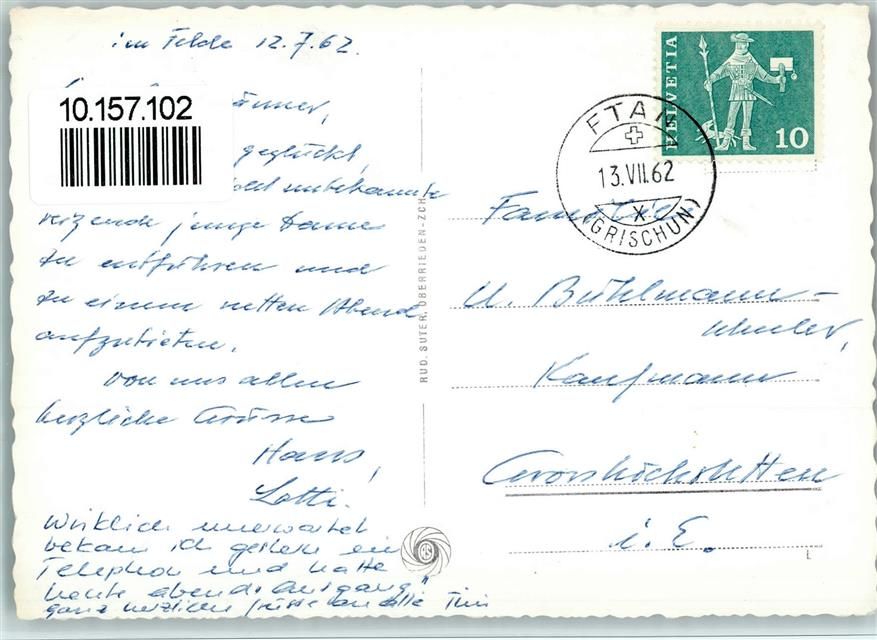 im Felde 12.7.62.
10.157.102
geglückt,
unbekannte
reizende junge Dame
zu entführen und
zu einem netten Abend
aufzubieten.
Von uns allen
herzliche Grüsse
Hans,
Lotti.
Wirklich unerwartet
bekam ich gestern ein
Telephon und hatte
heute abend "Ausgang"
ganz herzliche Grüsse an alle
RUD. SUTER, OBERRIEDEN-ZCH.
HELVETIA
10
FTAN
13.VII.62
(GRISCHUN)
Familie
U. Bühlmann-
Kaufmann
Grosshöchstetten
i. E.